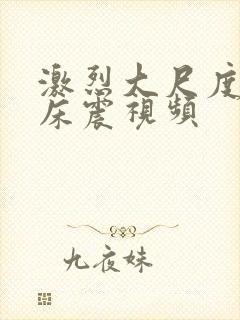 激烈大尺度
床震視頻
九夜妹